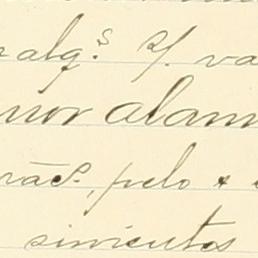 alg.s S/. va
nor alam
rão, pelo +
simientos